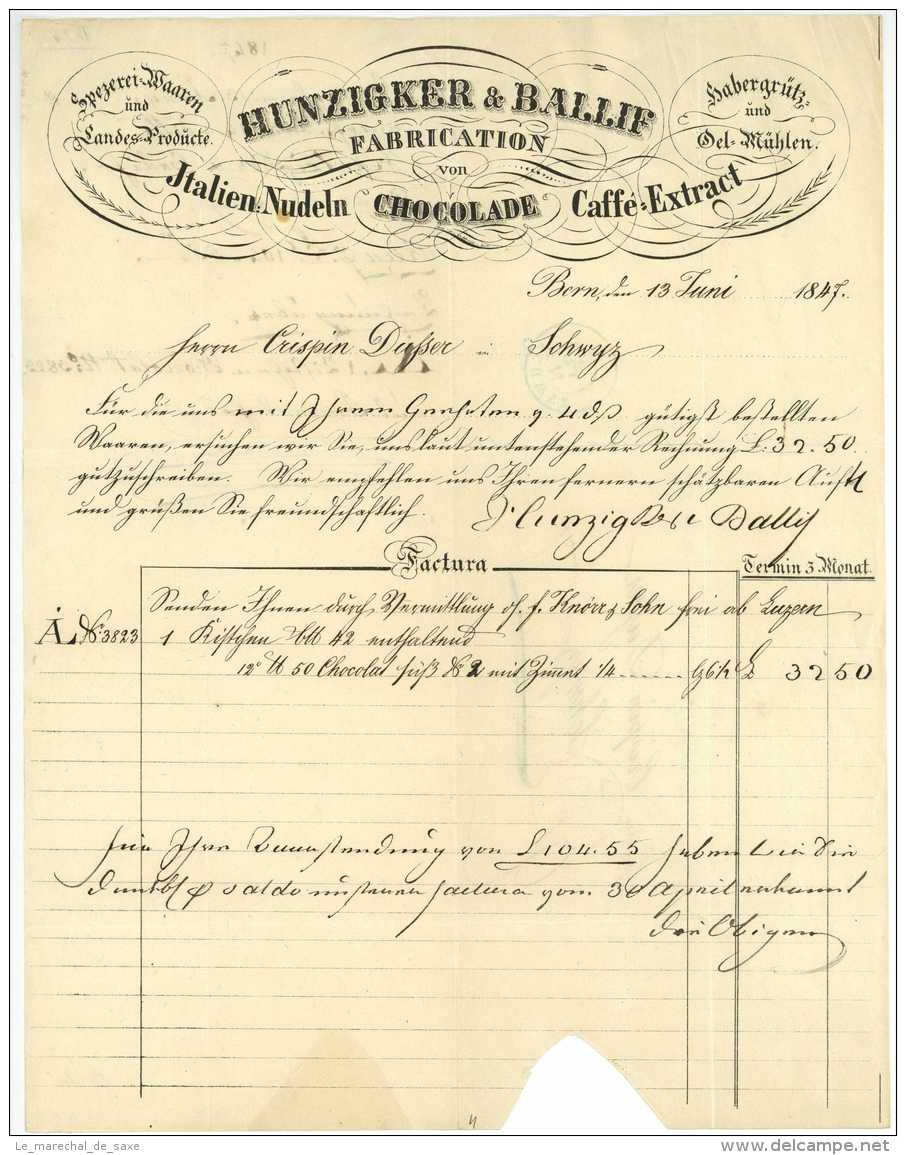 Spezerei-Waaren
und
Landes-Producte.
HUNZIGKER & BALLIF
FABRICATION
von
CHOCOLADE
Italien: Nudeln
Caffé-Extract
Habergrütz-
und
Oel-Mühlen.
Bern, den 13 Juni 1847.
Herrn Crispin Dusser in Schwyz
Für die uns mit Ihrem Geehrten v. 4 dß gütigst bestellten
Waaren, ersuchen wir Sie, uns laut untenstehender Rechnung L. 32.50
gutzuschreiben. Wir empfehlen uns Ihren fernern schätzbaren Auftr
und grüßen Sie freundschaftlich. Hunzigker & Ballif
Factura
Termin 3 Monat.
Senden Ihnen durch Vermittlung H. F. Knörr & Sohn frei ab Luzern
ÅL No. 3823 1 Kistchen btto 42 enthaltend
50 Chocolat süß No 2 mit Zimmt 1/4 L 32 50
für Ihre Baarsendung von L 104.55 haben wir Sie
saldo unserer Factura vom 30 April erkannt
Die Obigen
Le_marechal_de_saxe
www.delcampe.net